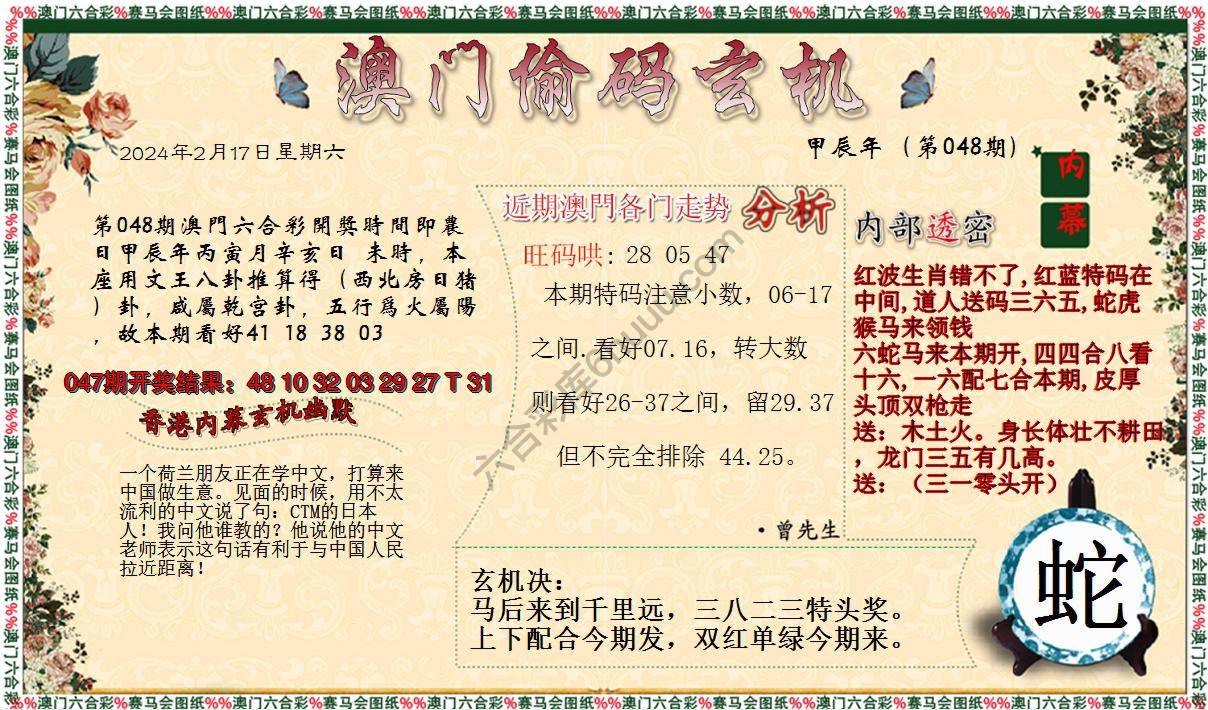 %%澳门六合彩%赛马会图纸%%澳门六合彩%赛马会图纸%%澳门六合彩%赛马会图纸%%澳门六合彩%赛马会图纸%%澳门六合彩%赛马会图纸%%澳门六合彩%赛马会图纸%%
澳门偷码玄机
2024年2月17日星期六
甲辰年（第048期）
内幕
第048期澳門六合彩開獎時間即農
日甲辰年丙寅月辛亥日 未時，本
座用文王八卦推算得（西北房日猪
）卦，咸屬乾宫卦，五行爲火屬陽
，故本期看好41 18 38 03
047期开奖结果：48 10 32 03 29 27 T 31
香港内幕玄机幽默
一个荷兰朋友正在学中文，打算来
中国做生意。见面的时候，用不太
流利的中文说了句：CTM的日本
人！我问他谁教的？他说他的中文
老师表示这句话有利于与中国人民
拉近距离！
近期澳門各门走势 分析
旺码哄：28 05 47
本期特码注意小数，06-17
之间.看好07.16，转大数
则看好26-37之间，留29.37
但不完全排除 44.25。
·曾先生
玄机决：
马后来到千里远，三八二三特头奖。
上下配合今期发，双红单绿今期来。
内部透密
红波生肖错不了,红蓝特码在
中间,道人送码三六五,蛇虎
猴马来领钱
六蛇马来本期开,四四合八看
十六,一六配七合本期,皮厚
头顶双枪走
送：木土火。身长体壮不耕田
，龙门三五有几高。
送：（三一零头开）
蛇
%%澳门六合彩%赛马会图纸%%澳门六合彩%赛马会图纸%%澳门六合彩%赛马会图纸%%澳门六合彩%赛马会图纸%%澳门六合彩%赛马会图纸%%澳门六合彩%赛马会图纸%%